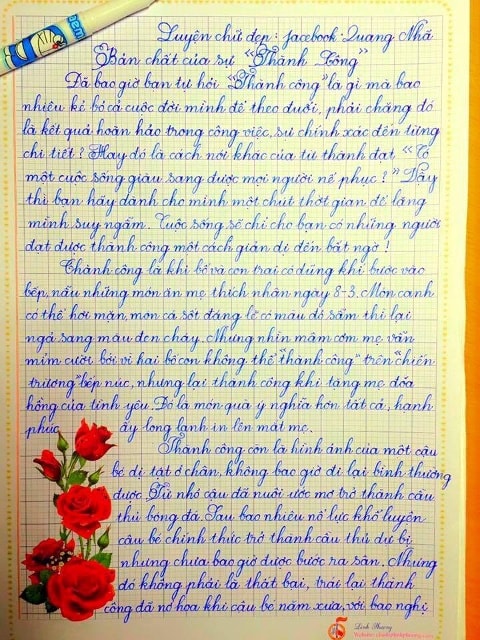 Luyện chữ đẹp: facebook: Quang Nhã
Bản chất của sự "Thành Công"
Đã bao giờ bạn tự hỏi "Thành công" là gì mà bao
nhiêu kẻ bỏ cả cuộc đời mình để theo đuổi, phải chăng đó
là kết quả hoàn hảo trong công việc, sự chính xác đến từng
chi tiết? Hay đó là cách nói khác của từ thành đạt "Có
một cuộc sống giàu sang được mọi người nể phục?" Vậy
thì bạn hãy dành cho mình một chút thời gian để lắng
mình suy ngẫm. Cuộc sống sẽ chỉ cho bạn có những người
đạt được thành công một cách giản dị đến bất ngờ!
Thành công là khi bố và con trai có dũng khí bước vào
bếp, nấu những món ăn mẹ thích nhân ngày 8-3. Món canh
có thể hơi mặn, món cá sốt đáng lẽ có màu đỏ sẫm thì lại
ngả sang màu đen cháy. Nhưng nhìn mâm cơm mẹ vẫn
mỉm cười bởi vì hai bố con không thể "thành công" trên "chiến
trường" bếp núc, nhưng lại thành công khi tặng mẹ đóa
hồng của tình yêu. Đó là món quà ý nghĩa hơn tất cả, hạnh
phúc ấy long lanh in lên mắt mẹ.
Thành công còn là hình ảnh của một cậu
bé dị tật ở chân, không bao giờ đi lại bình thường
được. Từ nhỏ cậu đã nuôi ước mơ trở thành cầu
thủ bóng đá. Sau bao nhiêu nỗ lực khổ luyện
cậu bé chính thức trở thành cầu thủ dự bị
nhưng chưa bao giờ được bước ra sân. Nhưng
đó không phải là thất bại, trái lại thành
công đã nở hoa khi cậu bé năm xưa, với bao nghị
Linh Phương